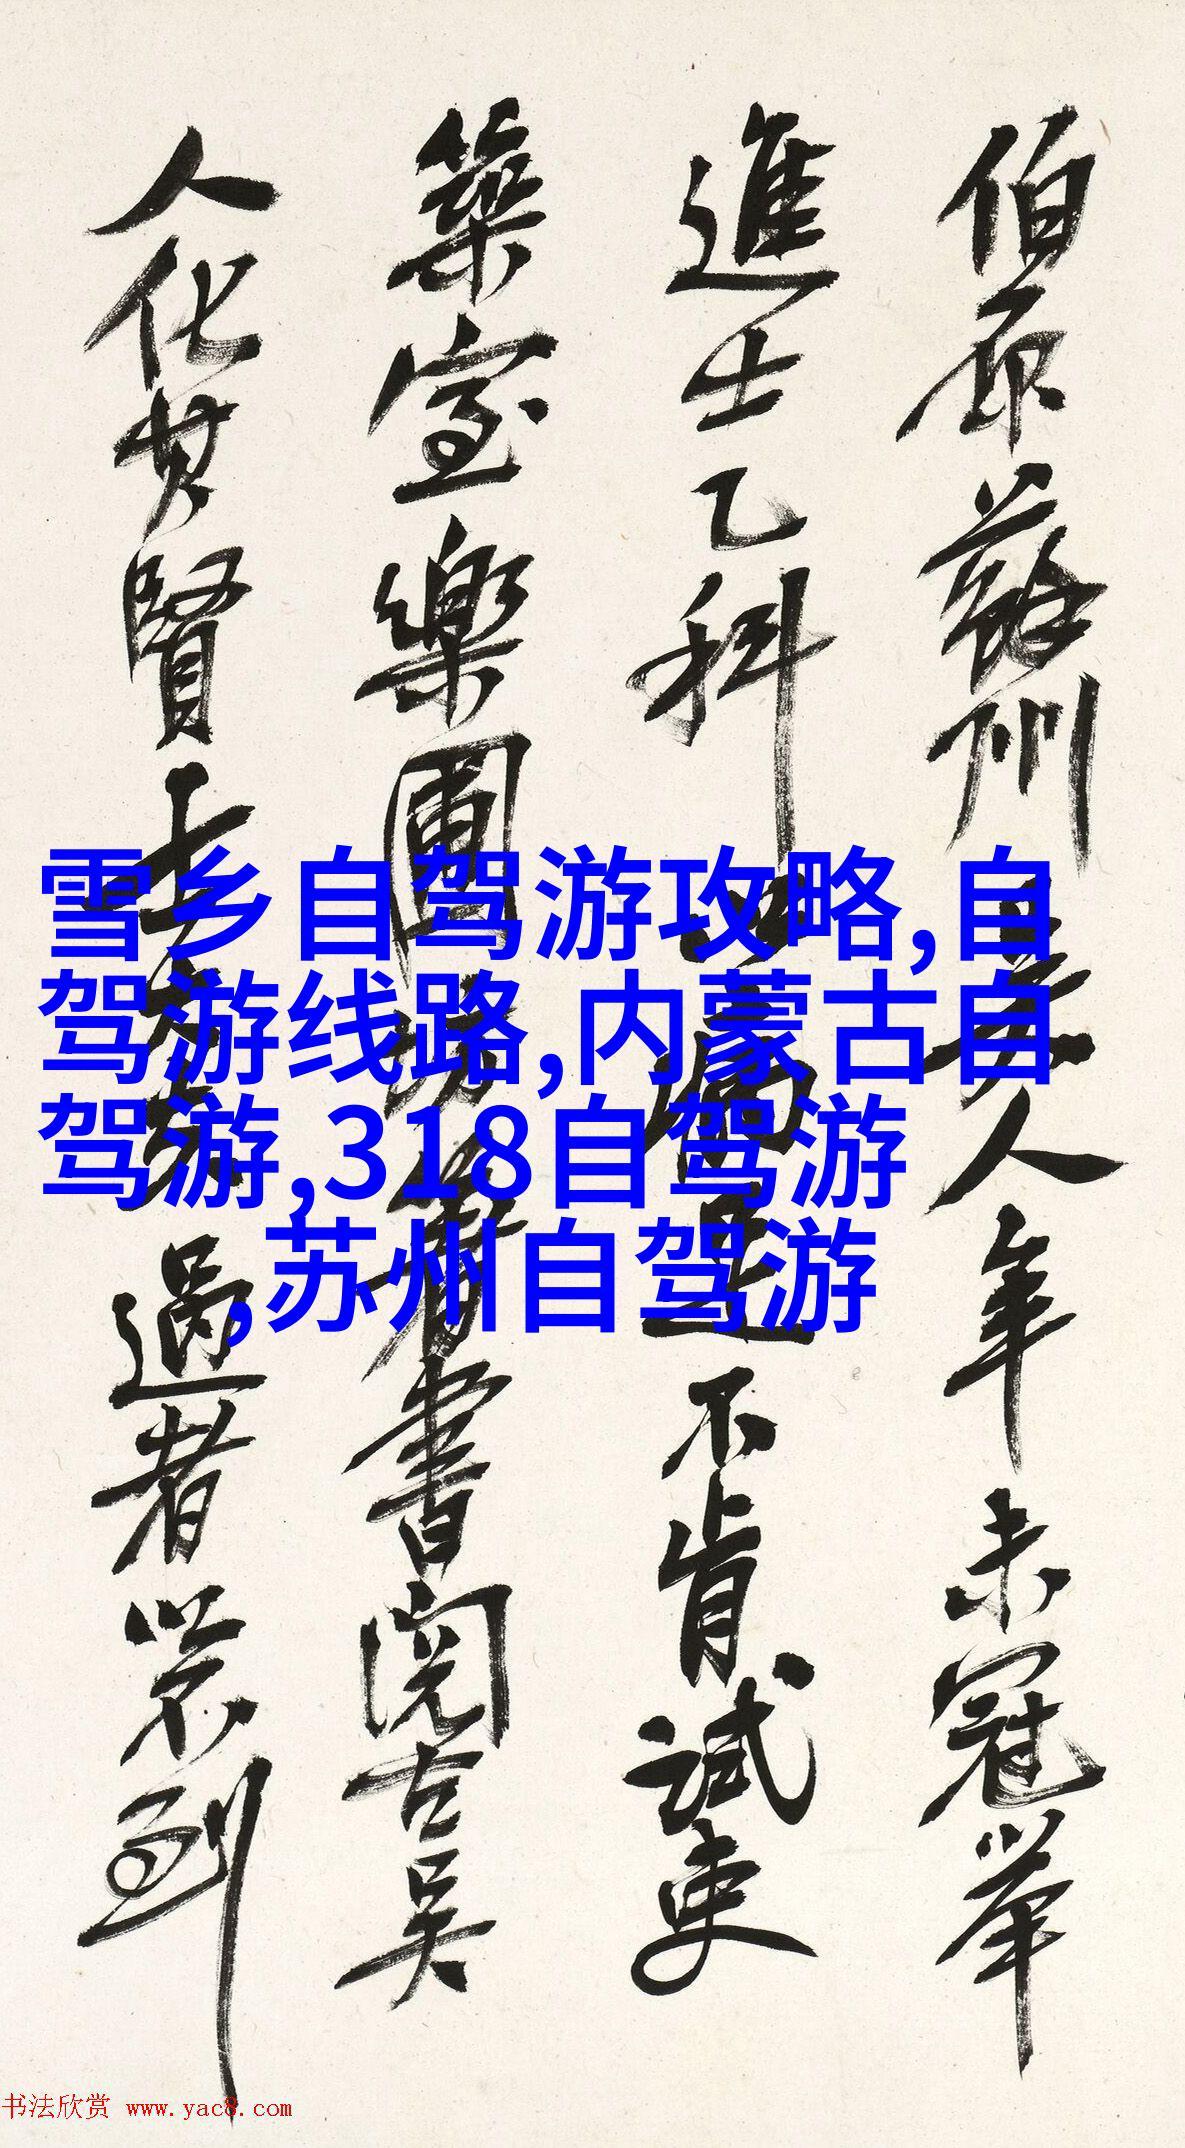 伯原蘇州人年未冠舉
進士乙科不肯試吏
築室樂圃著書閱古吳
人化其賢過者以不到
雪乡自驾游攻略,自
驾游线路,内蒙古自
驾游,318自驾游
,苏州自驾游
书法欣赏 www.yac8.com